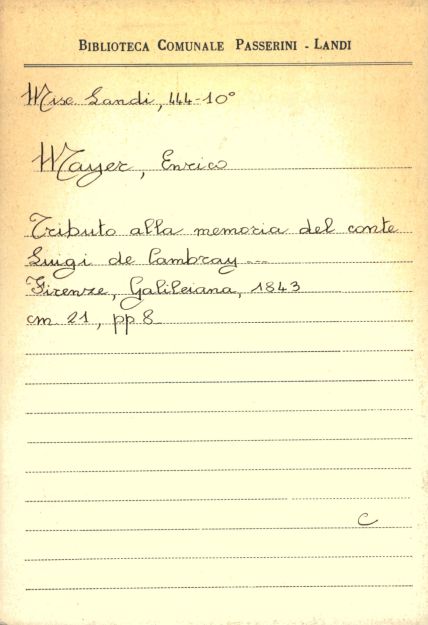 BIBLIOTECA COMUNALE PASSERINI - LANDI
Misc Landi, 444-10°
Mayer, Enrico
Tributo alla memoria del conte
Luigi de Cambray ---
Firenze, Galileiana, 1843
cm. 21, pp 8
C